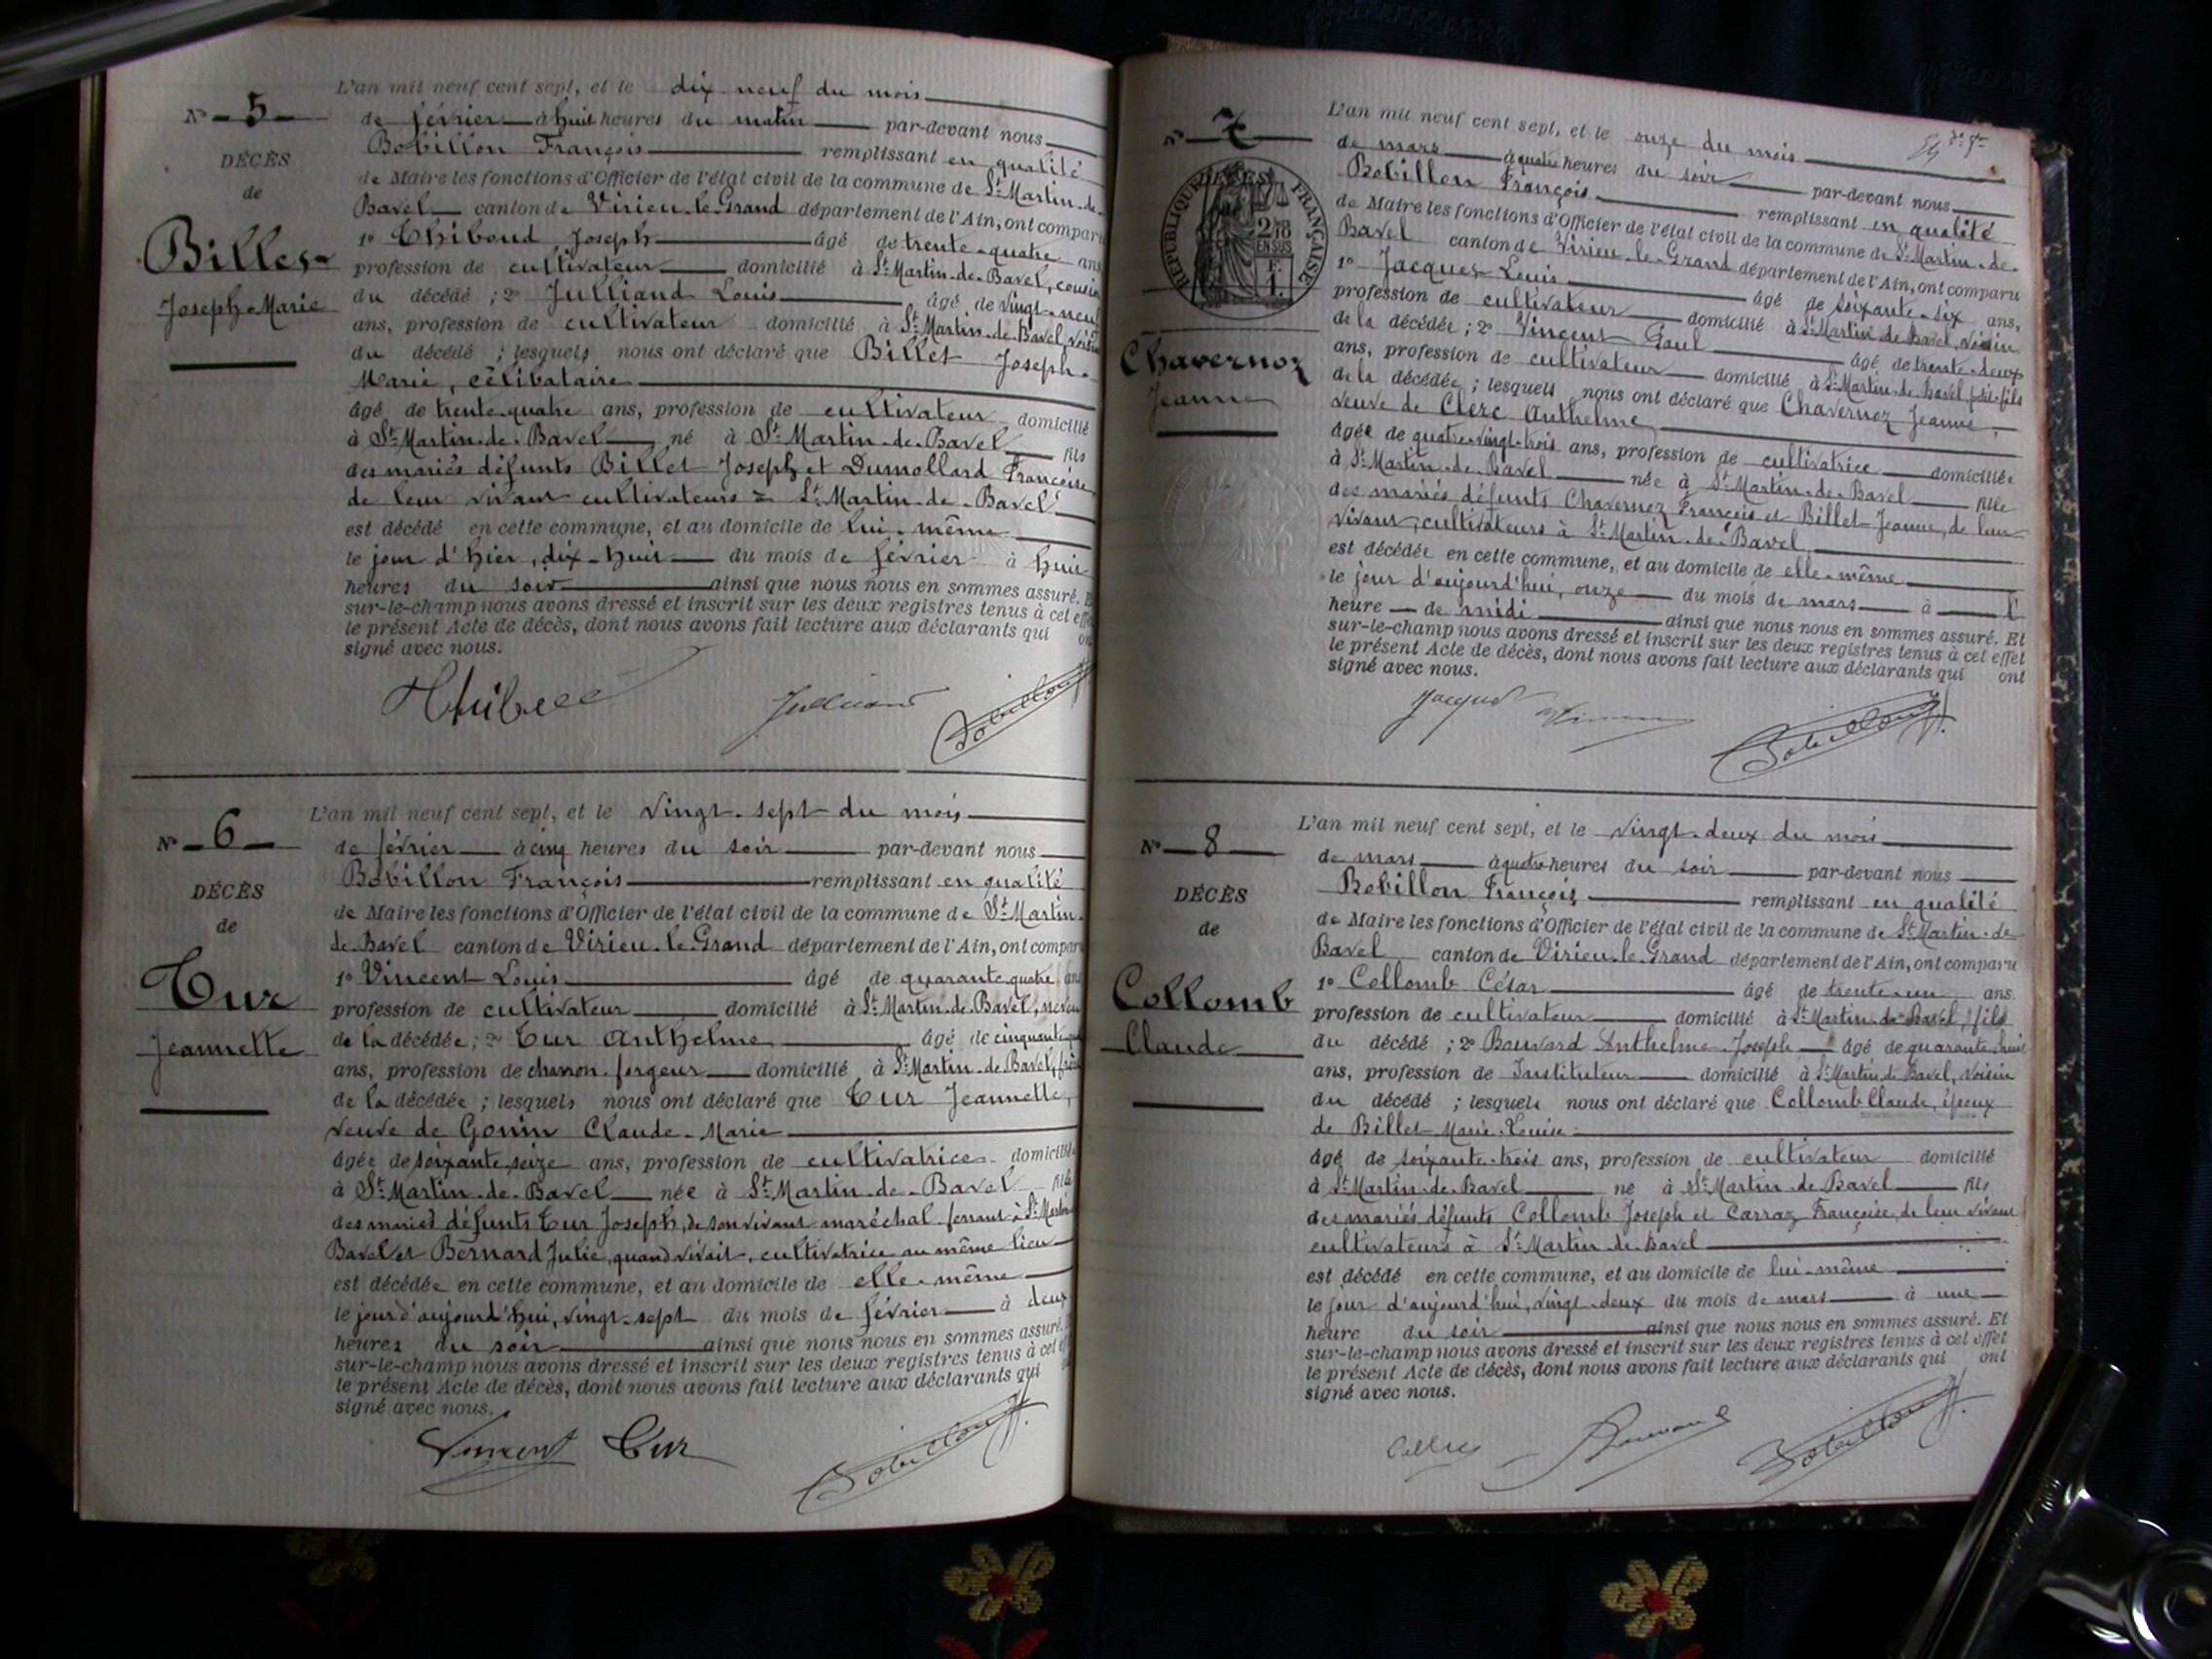 N° 5
DÉCÈS
de
Billet
Joseph-Marie
L'an mil neuf cent sept, et le dix neuf du mois
de février à huit heures du matin par-devant nous
Bobillon François remplissant en qualité
de Maire les fonctions d'Officier de l'état civil de la commune de St Martin-de-
Bavel canton de Virieu-le-Grand département de l'Ain, ont comparu
1° Thiboud Joseph âgé de trente-quatre ans
profession de cultivateur domicilié à St Martin-de-Bavel, cousin
du décédé ; 2° Julliand Louis âgé de vingt-neuf
ans, profession de cultivateur domicilié à St Martin-de-Bavel, voisin
du décédé ; lesquels nous ont déclaré que Billet Joseph-
Marie, célibataire
âgé de trente-quatre ans, profession de cultivateur domicilié
à St Martin-de-Bavel né à St Martin-de-Bavel fils
des mariés défunts Billet Joseph et Dumollard Françoise,
de leur vivant cultivateurs à St Martin-de-Bavel
est décédé en cette commune, et au domicile de lui-même
le jour d'hier, dix-huit du mois de février à huit
heures du soir ainsi que nous nous en sommes assuré. E
sur-le-champ nous avons dressé et inscrit sur les deux registres tenus à cet effe
le présent Acte de décès, dont nous avons fait lecture aux déclarants qui on
signé avec nous.
Julliand Bobillon
N° 6
DÉCÈS
de
Tur
Jeannette
L'an mil neuf cent sept, et le vingt-sept du mois
de février à cinq heures du soir par-devant nous
Bobillon François remplissant en qualité
de Maire les fonctions d'Officier de l'état civil de la commune de St Martin-
de-Bavel canton de Virieu-le-Grand département de l'Ain, ont comparu
1° Vincent Louis âgé de quarante-quatre ans
profession de cultivateur domicilié à St Martin-de-Bavel, neveu
de la décédée ; 2° Tur Anthelme âgé de cinquante
ans, profession de charron-forgeur domicilié à St Martin-de-Bavel, frère
de la décédée ; lesquels nous ont déclaré que Tur Jeannette,
veuve de Gonin Claude-Marie
âgée de soixante-seize ans, profession de cultivatrice domiciliée
à St Martin-de-Bavel née à St Martin-de-Bavel fille
des mariés défunts Tur Joseph, de son vivant maréchal-ferrant à St Martin
Bavel et Bernard Julie, quand vivait, cultivatrice au même lieu
est décédée en cette commune, et au domicile de elle-même
le jour d'aujourd'hui, vingt-sept du mois de février à deux
heures du soir ainsi que nous nous en sommes assuré.
sur-le-champ nous avons dressé et inscrit sur les deux registres tenus à cet
le présent Acte de décès, dont nous avons fait lecture aux déclarants qui
signé avec nous.
Vincent Tur Bobillon
N° 7
DÉCÈS
RÉPUBLIQUE FRANÇAISE
2/10 EN SUS
Chavernoz
Jeanne
L'an mil neuf cent sept, et le onze du mois
de mars à quatre heures du soir par-devant nous
Bobillon François remplissant en qualité
de Maire les fonctions d'Officier de l'état civil de la commune de St Martin-de-
Bavel canton de Virieu-le-Grand département de l'Ain, ont comparu
1° Jacquet Louis âgé de soixante-six ans,
profession de cultivateur domicilié à St Martin-de-Bavel, voisin
de la décédée ; 2° Vincent Paul âgé de trente-deux
ans, profession de cultivateur domicilié à St Martin-de-Bavel petit-fils
de la décédée ; lesquels nous ont déclaré que Chavernoz Jeanne,
veuve de Clerc Anthelme
âgée de quatre-vingt-trois ans, profession de cultivatrice domiciliée
à St Martin-de-Bavel née à St Martin-de-Bavel fille
des mariés défunts Chavernoz François et Billet Jeanne, de leur
vivant, cultivateurs à St Martin-de-Bavel
est décédée en cette commune, et au domicile de elle-même
le jour d'aujourd'hui, onze du mois de mars à l'
heure de midi ainsi que nous nous en sommes assuré. Et
sur-le-champ nous avons dressé et inscrit sur les deux registres tenus à cet effet
le présent Acte de décès, dont nous avons fait lecture aux déclarants qui ont
signé avec nous.
Jacquet Bobillon
N° 8
DÉCÈS
de
Collomb
Claude
L'an mil neuf cent sept, et le vingt-deux du mois
de mars à quatre heures du soir par-devant nous
Bobillon François remplissant en qualité
de Maire les fonctions d'Officier de l'état civil de la commune de St Martin-de-
Bavel canton de Virieu-le-Grand département de l'Ain, ont comparu
1° Collomb César âgé de trente-un ans.
profession de cultivateur domicilié à St Martin-de-Bavel, fils
du décédé ; 2° Bouvard Anthelme-Joseph âgé de quarante-huit
ans, profession de Instituteur domicilié à St Martin-de-Bavel, voisin
du décédé ; lesquels nous ont déclaré que Collomb Claude, époux
de Billet Marie-Louise
âgé de soixante-trois ans, profession de cultivateur domicilié
à St Martin-de-Bavel né à St Martin-de-Bavel fils
des mariés défunts Collomb Joseph et Carraz Françoise, de leur vivant
cultivateurs à St Martin-de-Bavel
est décédé en cette commune, et au domicile de lui-même
le jour d'aujourd'hui, vingt-deux du mois de mars à une
heure du soir ainsi que nous nous en sommes assuré. Et
sur-le-champ nous avons dressé et inscrit sur les deux registres tenus à cet effet
le présent Acte de décès, dont nous avons fait lecture aux déclarants qui ont
signé avec nous.
Bobillon